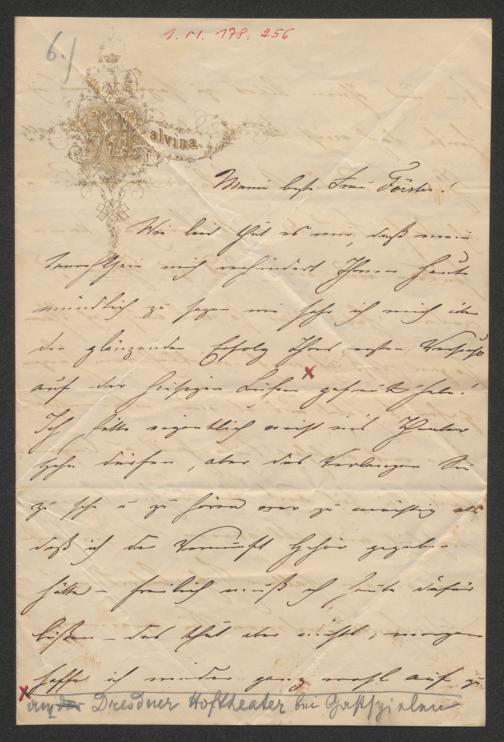 6.)
Malvina.
Meine beste Frau Förster!
Wie leid thut es mir, daß mein
mich verhindert Ihnen heute
mündlich zu sagen wie sehr ich mich über
den glänzenden Erfolg Ihres ersten Versuchs
auf der hiesigen Bühne x gefreut habe!
Ich hätte eigentlich nicht ins Theater
gehn dürfen, aber das Verlangen Sie
zu sehn u zu hören war zu mächtig als
daß ich der Vernunft Gehör gegeben
hätte – freilich muß ich heute dafür
büßen – das thut aber nichts, morgen
hoffe ich wieder ganz wohl auf zu
x Dresdner Hoftheater bei Gastspielen